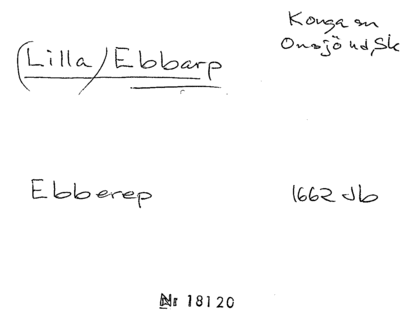 Konga sn
Onsjö hd, Sk
(Lilla) Ebbarp
Ebberep 1662 Jb
Nr 18120